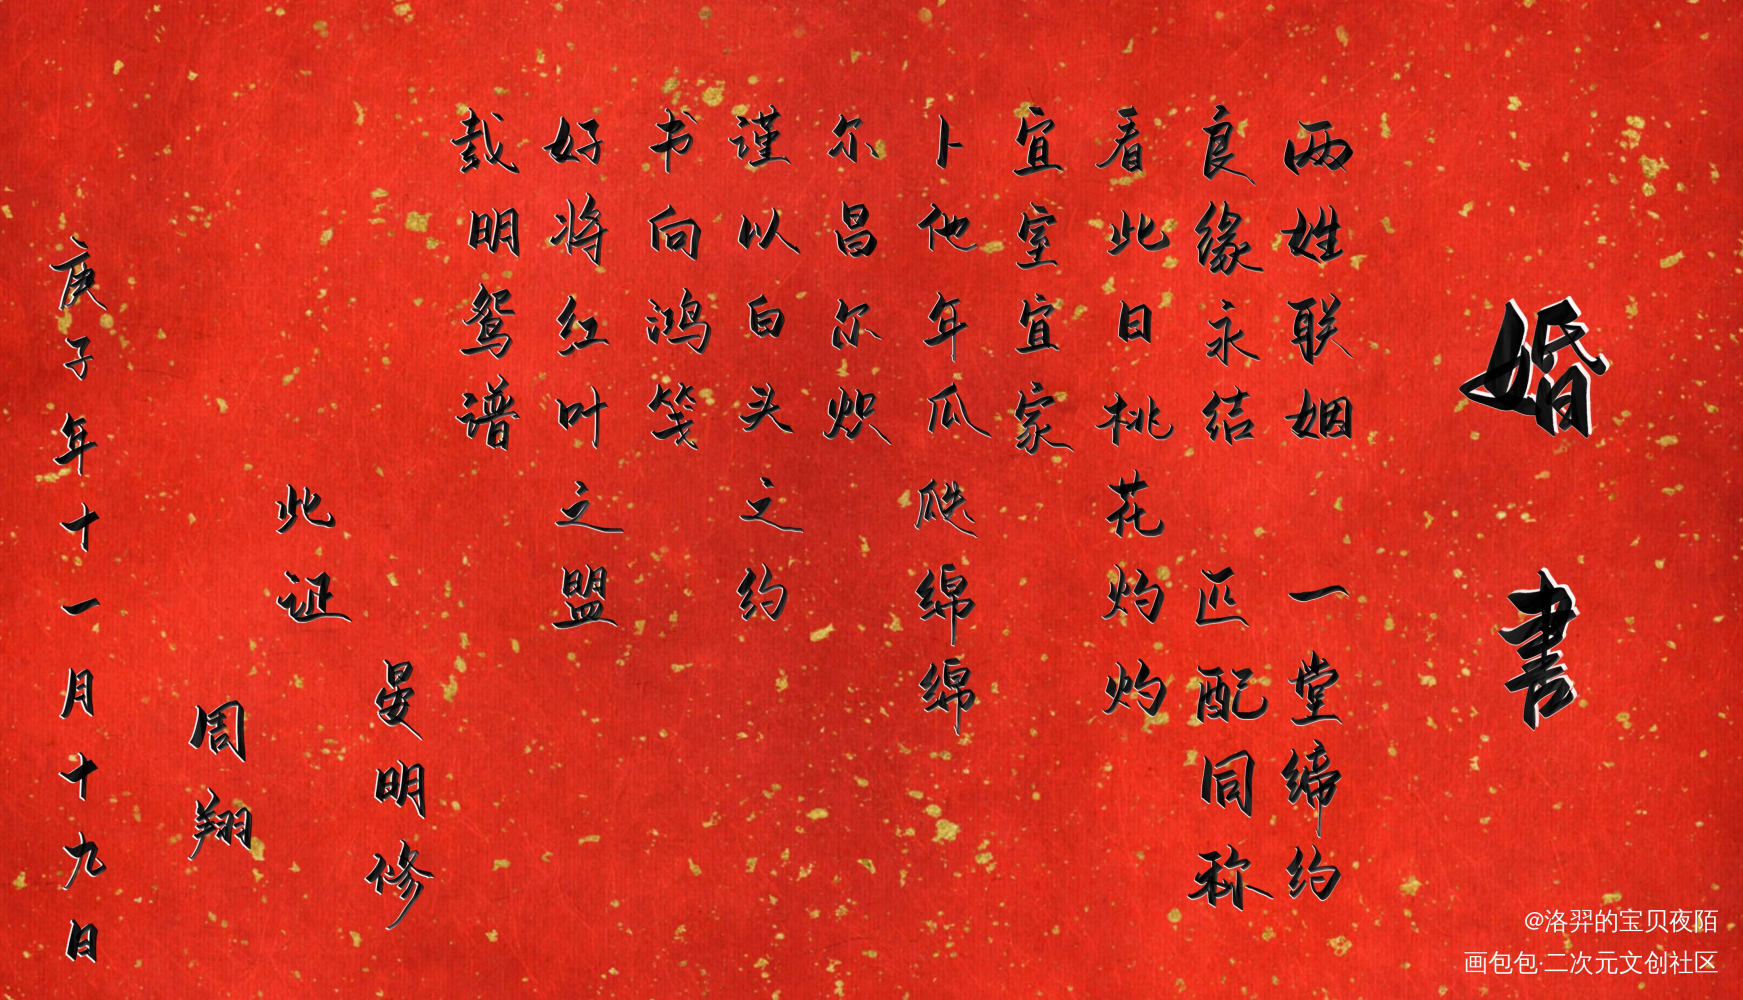 婚書
两姓联姻 一堂缔约
良缘永结 匹配同称
看此日桃花灼灼
宜室宜家
卜他年瓜瓞绵绵
尔昌尔炽
谨以白头之约
书向鸿笺
好将红叶之盟
载明鸳谱
晏明修
此证
周翔
庚子年十一月十九日
@洛羿的宝贝夜陌
画包包·二次元文创社区